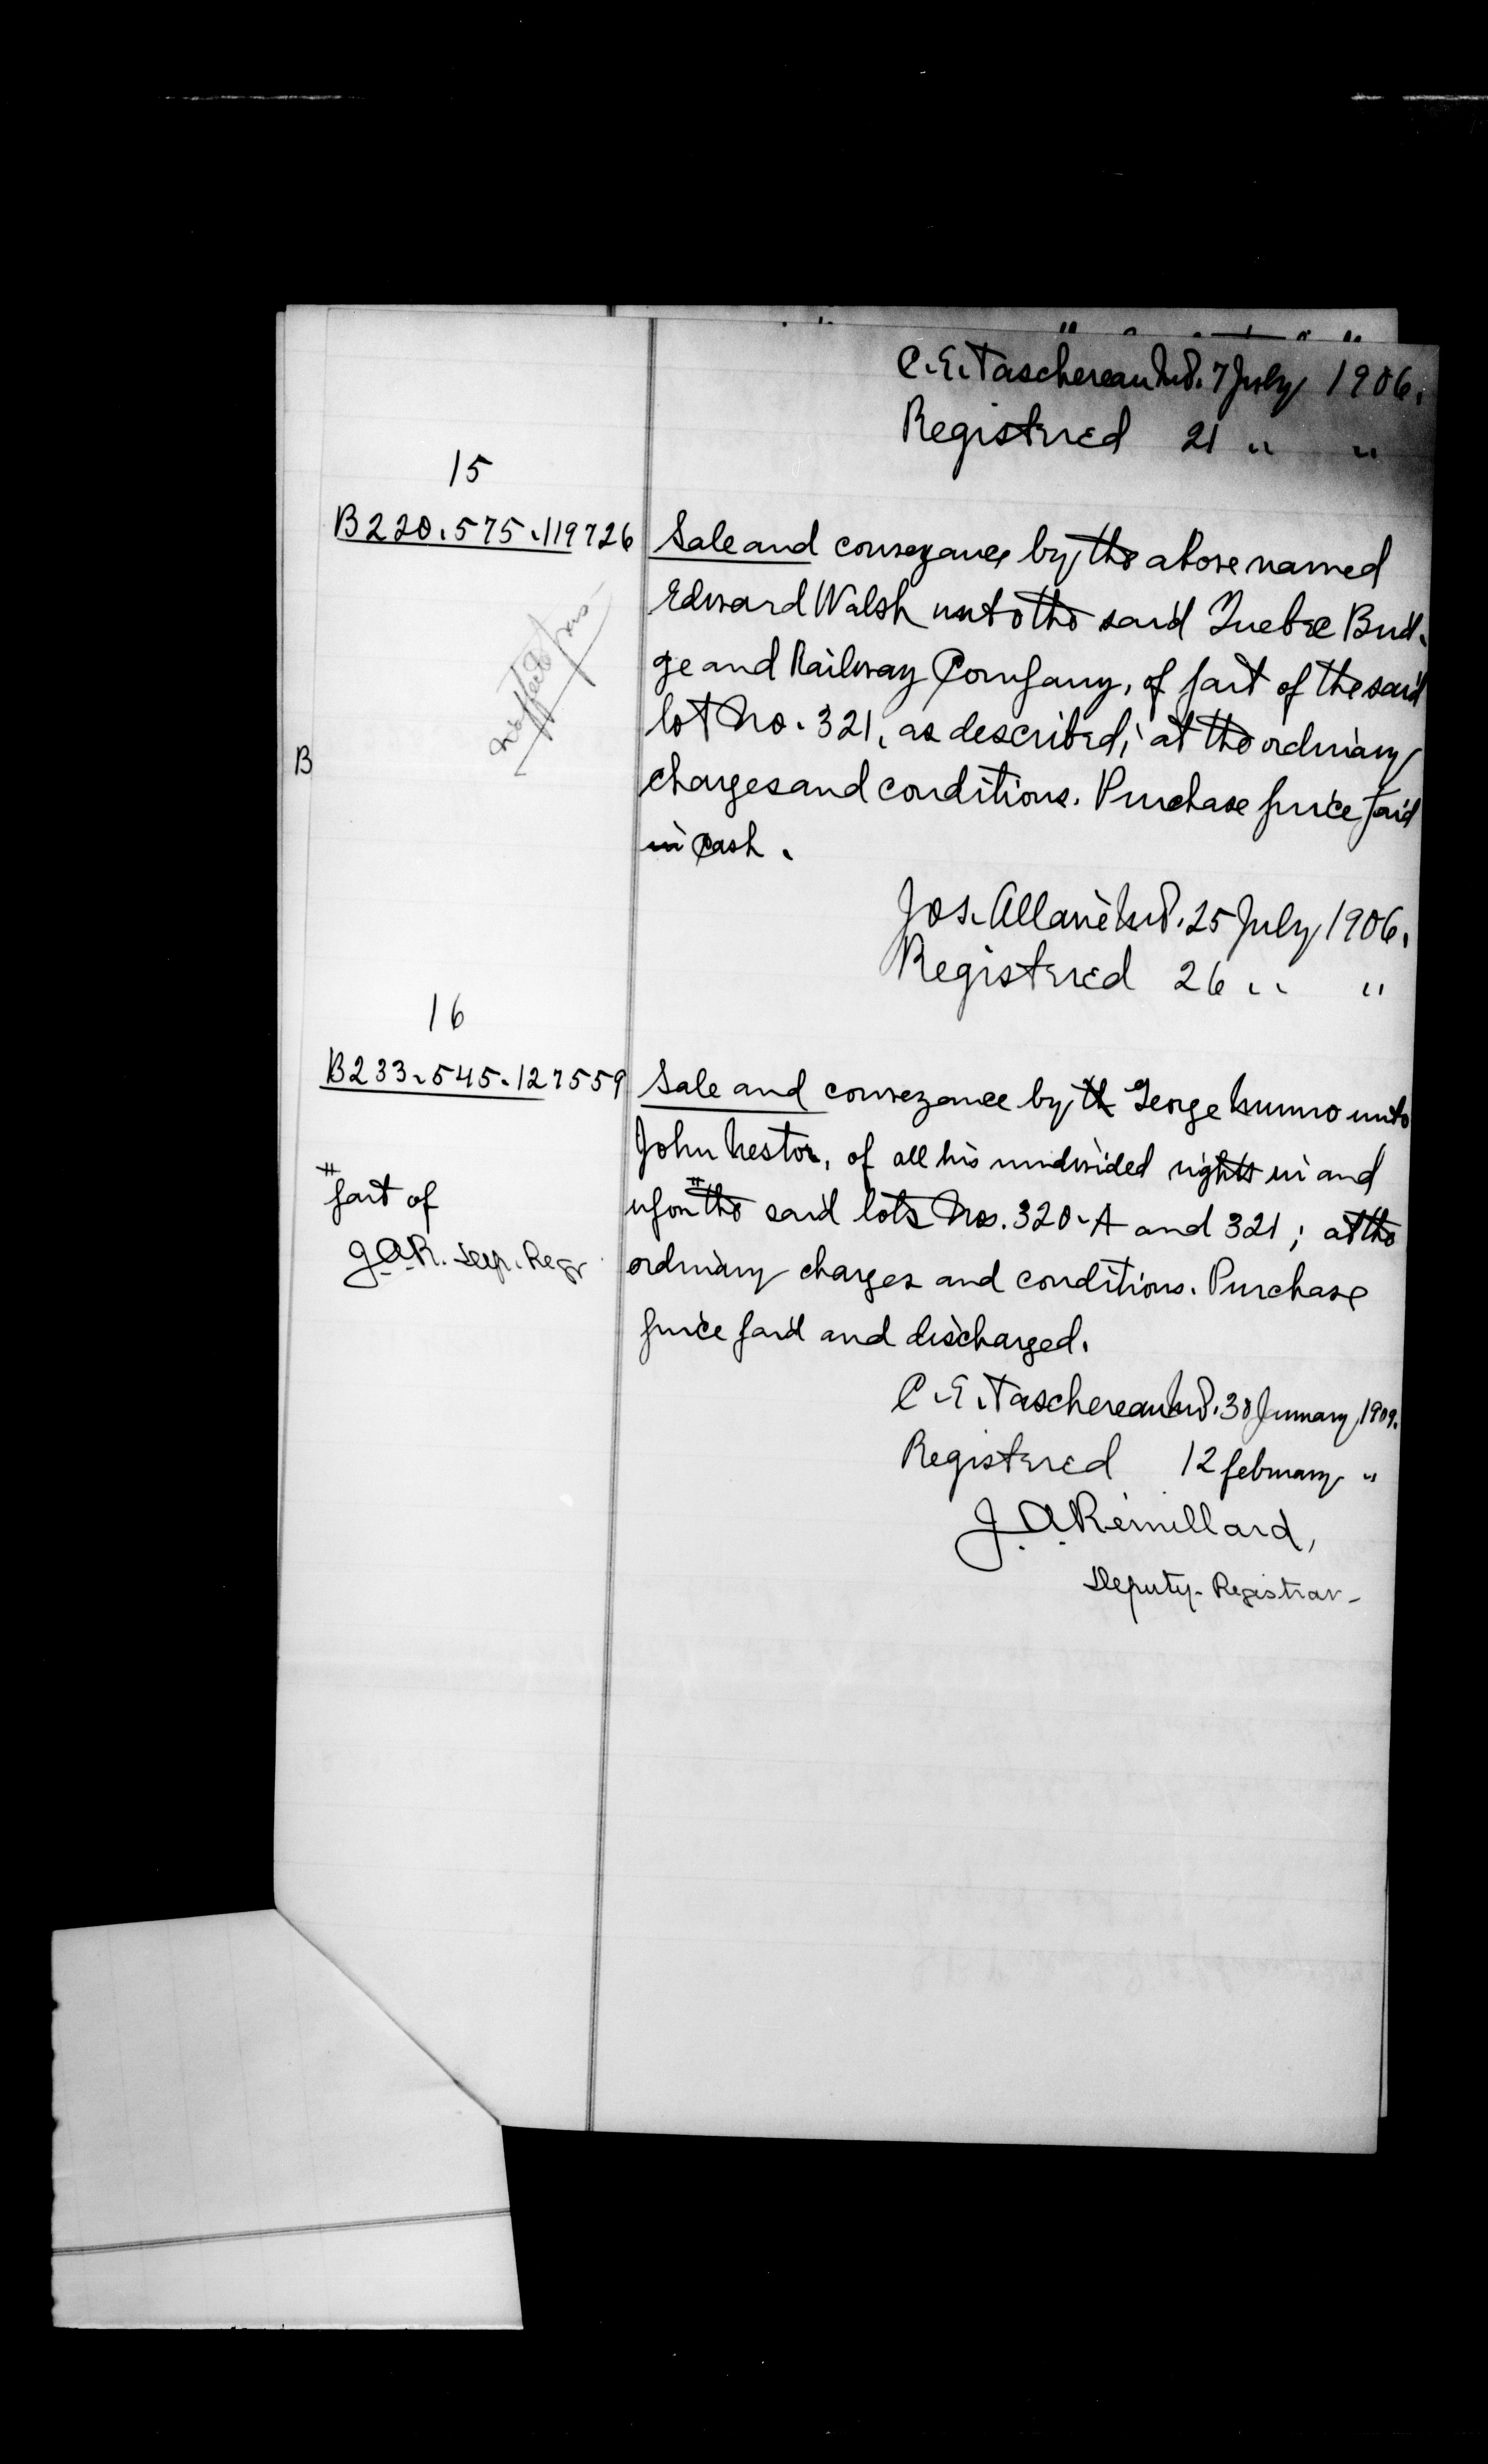 C. E. Taschereau N.P. 7 July 1906.
Registered 21 " "
15
B 220. 575. 119726
Sale and conveyance by the above named
Edward Walsh unto the said Quebec Brid-
ge and Railway Company, of part of the said
lot No. 321, as described; at the ordinary
B
charges and conditions. Purchase price paid
in cash.
Jos. Allaire N.P. 25 July 1906.
Registered 26 " "
16
B 233. 545. 127559
Sale and conveyance by George Munro unto
John Nestor, of all his undivided rights in and
upon # the said lots Nos. 320-A and 321; at the
# part of
J.A.R. Dep. Regr
ordinary charges and conditions. Purchase
price paid and discharged.
C. E. Taschereau N.P. 30 January 1909.
Registered 12 february "
J. A. Rémillard,
Deputy-Registrar-